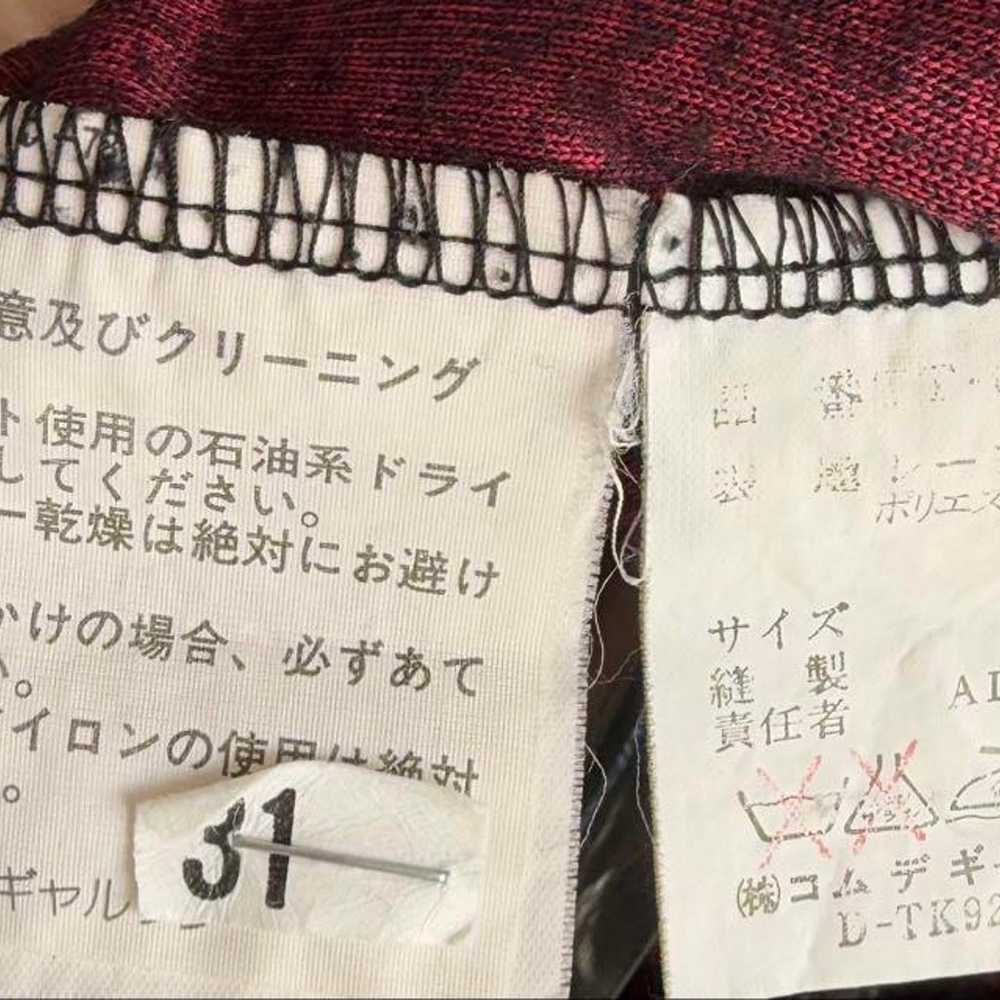 意及びクリーニング
ト使用の石油系ドライ
してください。
ー乾燥は絶対にお避け
かけの場合、必ずあて
い。
アイロンの使用は絶対
。
ギャルソン
31
品 番
表 地
ポリエス
サイズ
縫 製
責任者
AD
サラシ
㈱コムデギャ
D-TK92